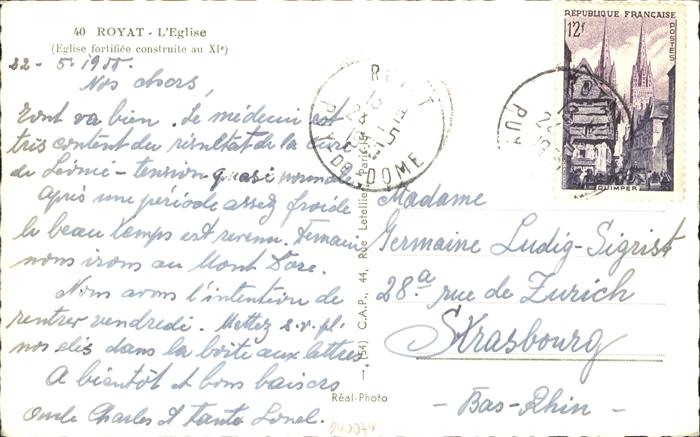 40 ROYAT - L'Eglise
(Eglise fortifiée construite au XIe)
22-5-1955.
Nos chers,
Tout va bien. Le médecin est
très content du résultat de la cure
de Léonie - tension quasi normale.
Après une période assez froide
le beau temps est revenu. Demain
nous irons au Mont Dore.
Nous avons l'intention de
rentrer vendredi. Mettez s.v.pl.
nos clés dans la boîte aux lettres
A bientôt et bons baisers
Oncle Charles et Tante Léonie.
REPUBLIQUE FRANÇAISE
12f
POSTES
QUIMPER
ROYAT
PUY-DE-DOME
PUY
Madame
Germaine Ludig-Sigrist
28.a rue de Zurich
Strasbourg
- Bas-Rhin -
(54) C.A.P., 44, Rue Letellier, Paris
Réal-Photo